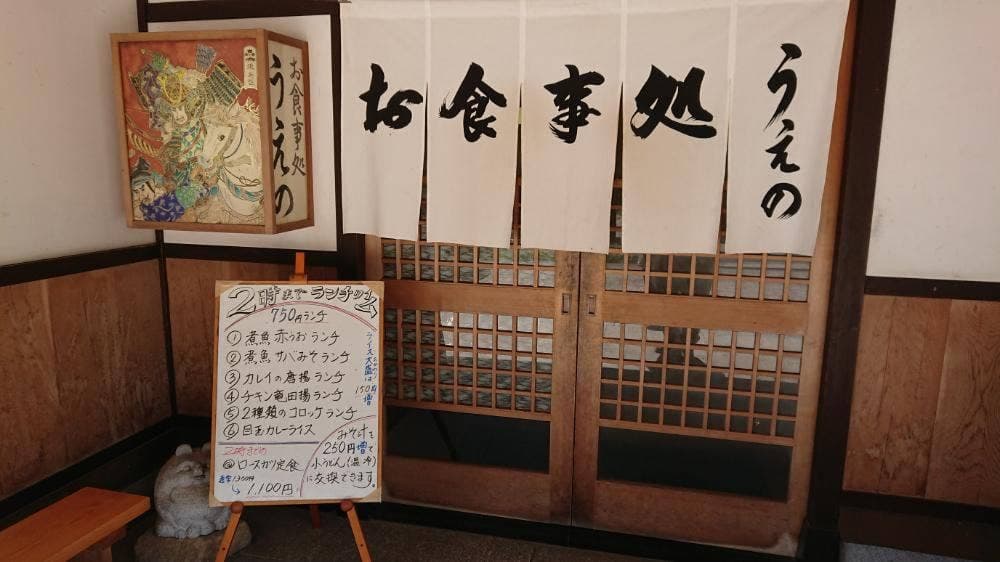 お食事処
うえの
お食事処
うえの
2時までランチOK
750円ランチ
① 煮魚 赤うおランチ
② 煮魚 サバみそランチ
③ カレイの唐揚ランチ
④ チキン竜田揚ランチ
⑤ 2種類のコロッケランチ
⑥ 目玉カレーライス
ライス大盛は
150円増
2時までの
ロースカツ定食
通常1300円
1,100円
みそ汁を
250円増で
小うどん(温・冷)
に交換できます。